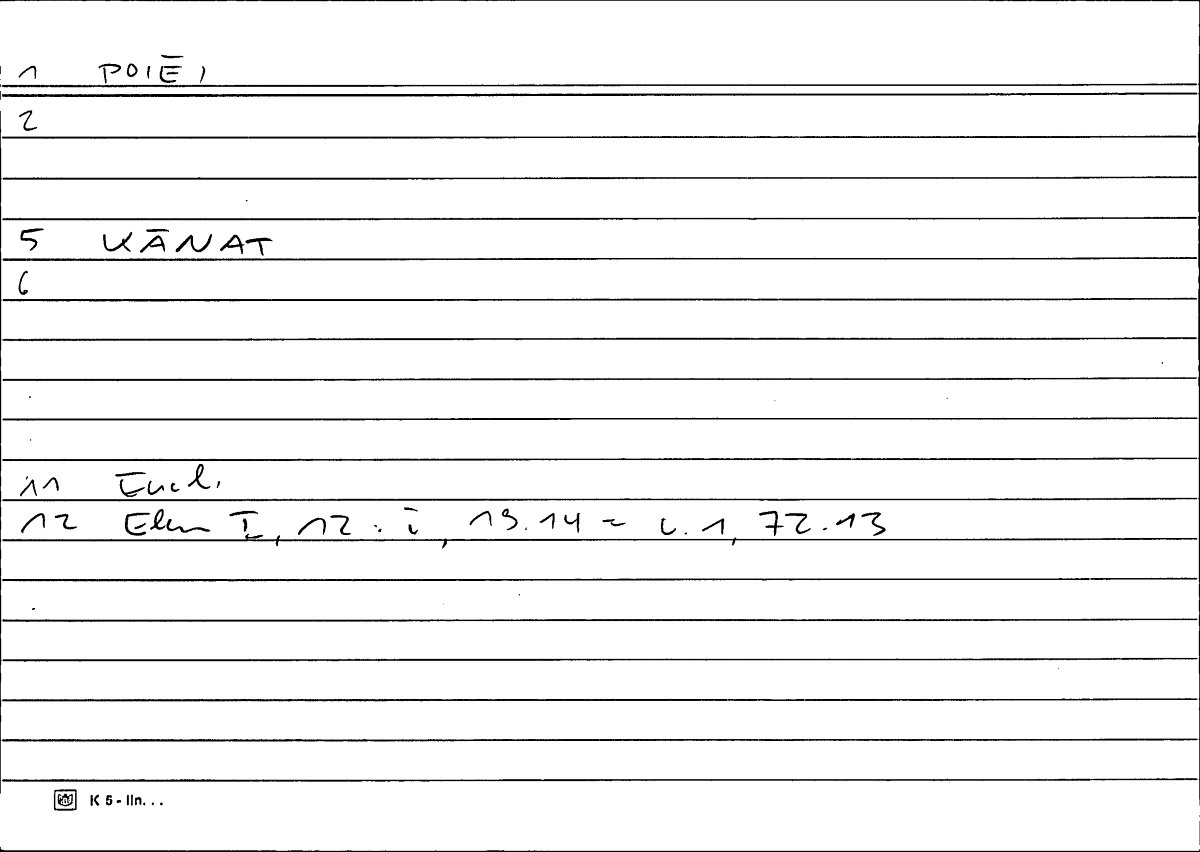 1 POIĒ,
2
5 KĀNAT
6
11 Eucl.
12 Elem I, 12 : i, 13.14 = i. 1, 72.13
K 5 - lin. . .